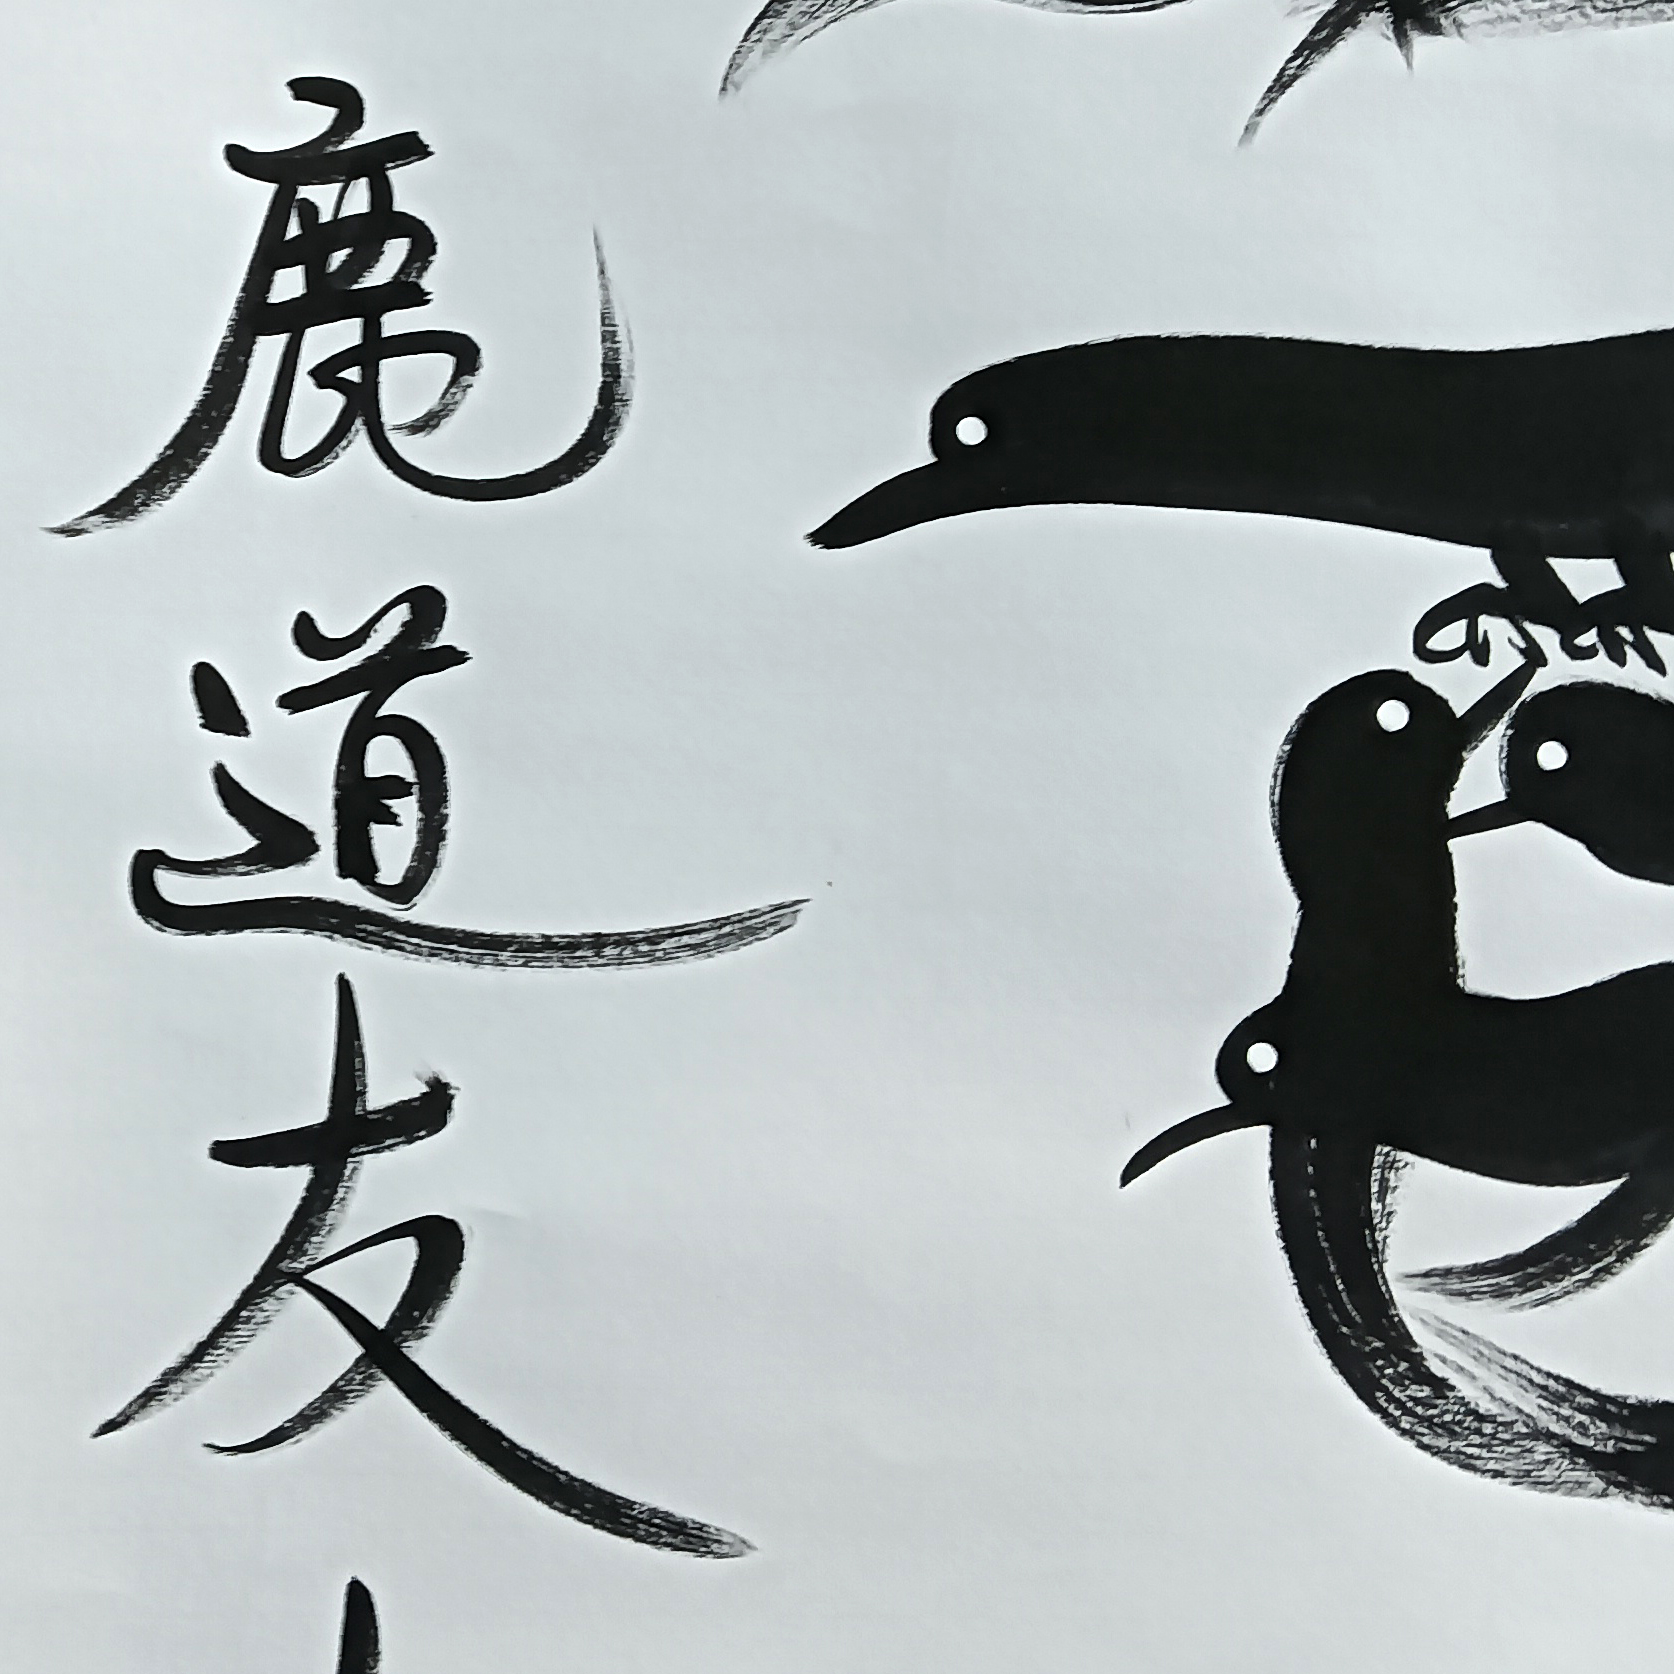 鹿道友